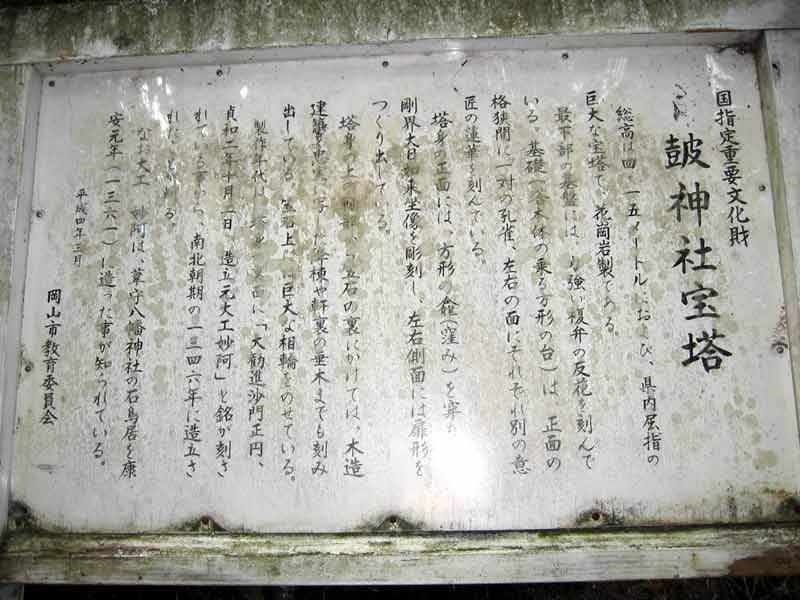 国指定重要文化財
鼓神社宝塔
総高は四 一五メートルにおよび、県内屈指の
巨大な宝塔で、花崗岩製である。
最下部の基盤には、力強い複弁の反花を刻んで
いる。基礎(塔本体の乗る方形の台)は、正面の
格狭間に一対の孔雀、左右の面にそれぞれ別の意
匠の蓮華を刻んでいる。
塔身の正面には、方形の龕(窪み)を穿ち
剛界大日如来坐像を彫刻し、左右側面には扉形を
つくり出している。
塔身の上の 部、笠石の裏にかけては、木造
建築を忠実に写した 棟や軒裏の垂木までも刻み
出している。笠石上には巨大な相輪をのせている。
製作年代は、 面に「大勧進沙門正円、
貞和二年十月一日、造立元大工妙阿」と銘が刻さ
れている事から、南北朝期の一三四六年に造立さ
れた 判る。
なお大工 妙阿は、葦守八幡神社の石鳥居を康
安元年(一三六一)に造った事が知られている。
平成四年三月
岡山市教育委員会